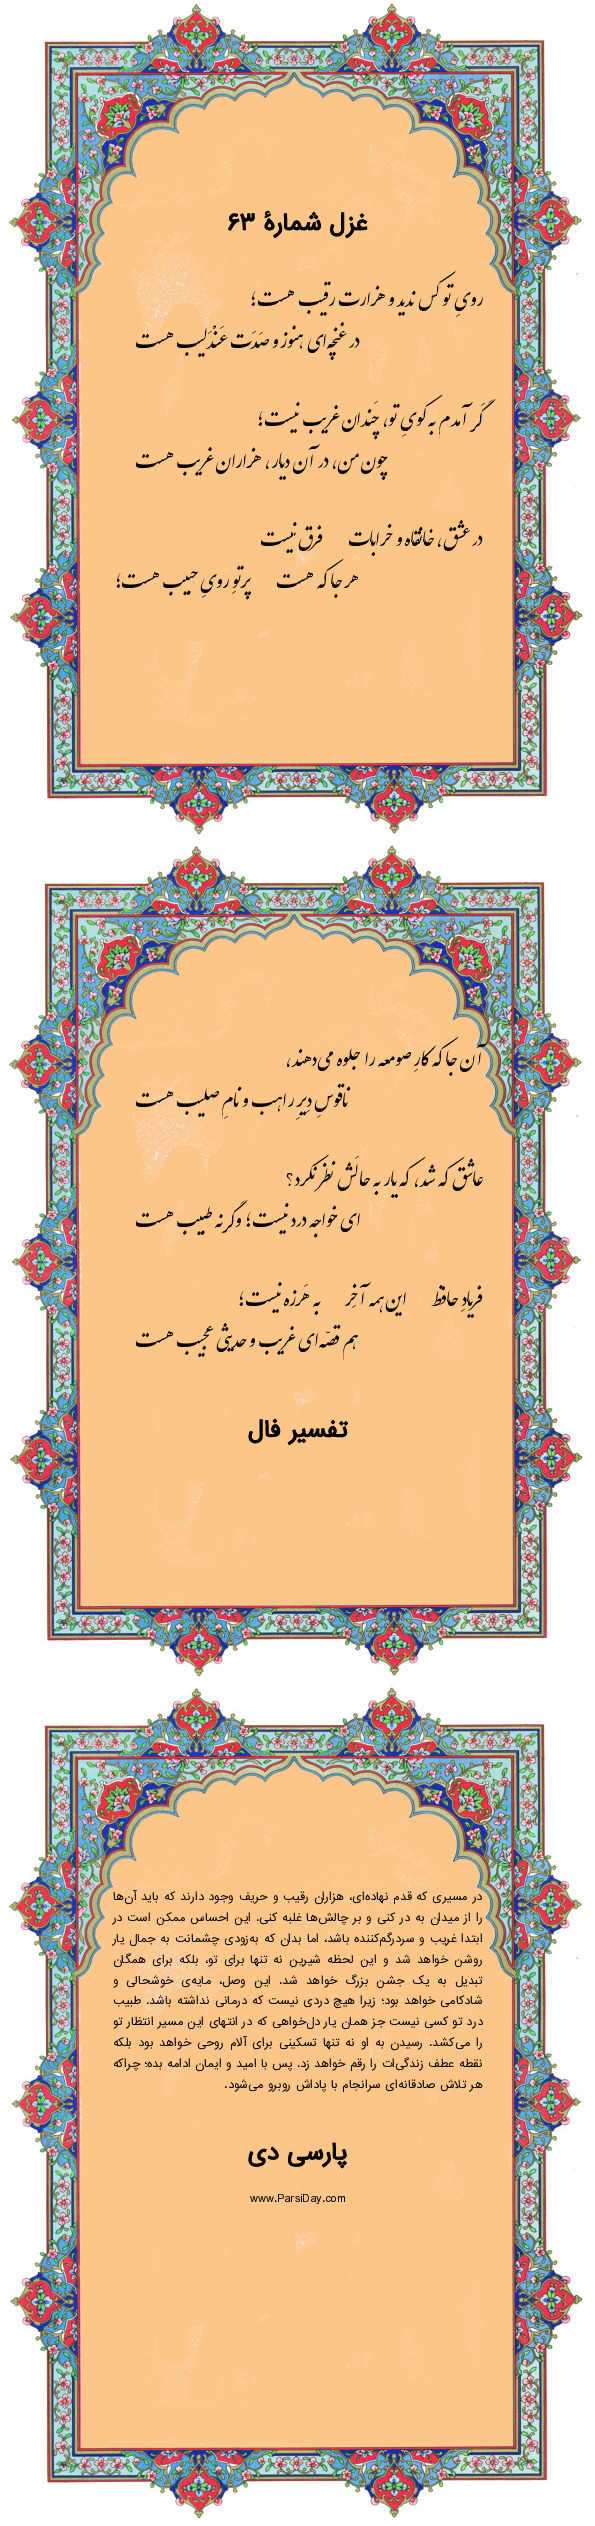 غزل شمارهٔ ۶۳
رویِ تو کس ندید و هزارت رقیب هست؛
در غنچه‌ای هنوز و صَدَت عَنْدَلیب هست
گر آمدم به کویِ تو، چَندان غریب نیست؛
چون من، در آن دیار، هزاران غریب هست
در عشق، خانقاه و خرابات فرق نیست
هر جا که هست پرتوِ رویِ حبیب هست؛
آن جا که کارِ صومعه را جلوه می‌دهند،
ناقوسِ دِیرِ راهب و نامِ صلیب هست
عاشق که شد، که یار به حالَش نظر نکرد؟
ای خواجه درد نیست؛ وگرنه طبیب هست
فریادِ حافظ این همه آخِر به هَرزه نیست؛
هم قصّه‌ای غریب و حدیثی عجیب هست
تفسیر فال
در مسیری که قدم نهاده‌ای، هزاران رقیب و حریف وجود دارند که باید آن‌ها
را از میدان به در کنی و بر چالش‌ها غلبه کنی. این احساس ممکن است در
ابتدا غریب و سردرگم‌کننده باشد، اما بدان که به‌زودی چشمانت به جمال یار
روشن خواهد شد و این لحظه شیرین نه تنها برای تو، بلکه برای همگان
تبدیل به یک جشن بزرگ خواهد شد. این وصل، مایه‌ی خوشحالی و
شادکامی خواهد بود؛ زیرا هیچ دردی نیست که درمانی نداشته باشد. طبیب
درد تو کسی نیست جز همان یار دل‌خواهی که در انتهای این مسیر انتظار تو
را می‌کشد. رسیدن به او نه تنها تسکینی برای آلام روحی خواهد بود بلکه
نقطه عطف زندگی‌ات را رقم خواهد زد. پس با امید و ایمان ادامه بده؛ چراکه
هر تلاش صادقانه‌ای سرانجام با پاداش روبرو می‌شود.
پارسی دی
www.ParsiDay.com